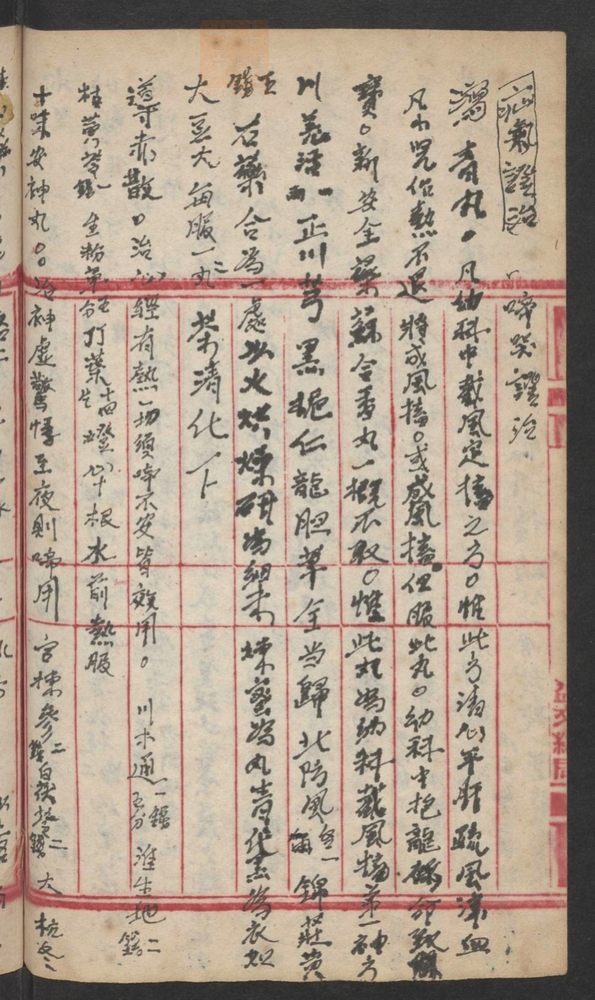 疝氣證治
啼哭證治
瀉青丸。凡幼科中截風定搐之方。惟此方清心平肝疏風涼血
凡小兒俗熱不退將成風搐。或感風搐但服此丸。幼科中抱龍
寶。新安全蝎蘇合香丸一概不取。惟此丸為幼科截風搐第一神方
川羌活一兩 正川芎 黑梔仁 龍胆草 全當歸 北防風各一兩 錦莊黃
右藥合為一處以火烘燥研為細末煉蜜為丸青黛為衣如
大豆大每服一二丸茶清化下
導赤散。治心經有熱一切須啼不安皆效用。川木通一錢五分 淮生地二錢
枝黃芩一錢 生粉草五分 灯心十根水煎熱服
十味安神丸。治神虛驚悸至夜則啼用 官揀參二錢 白茯苓二錢 大